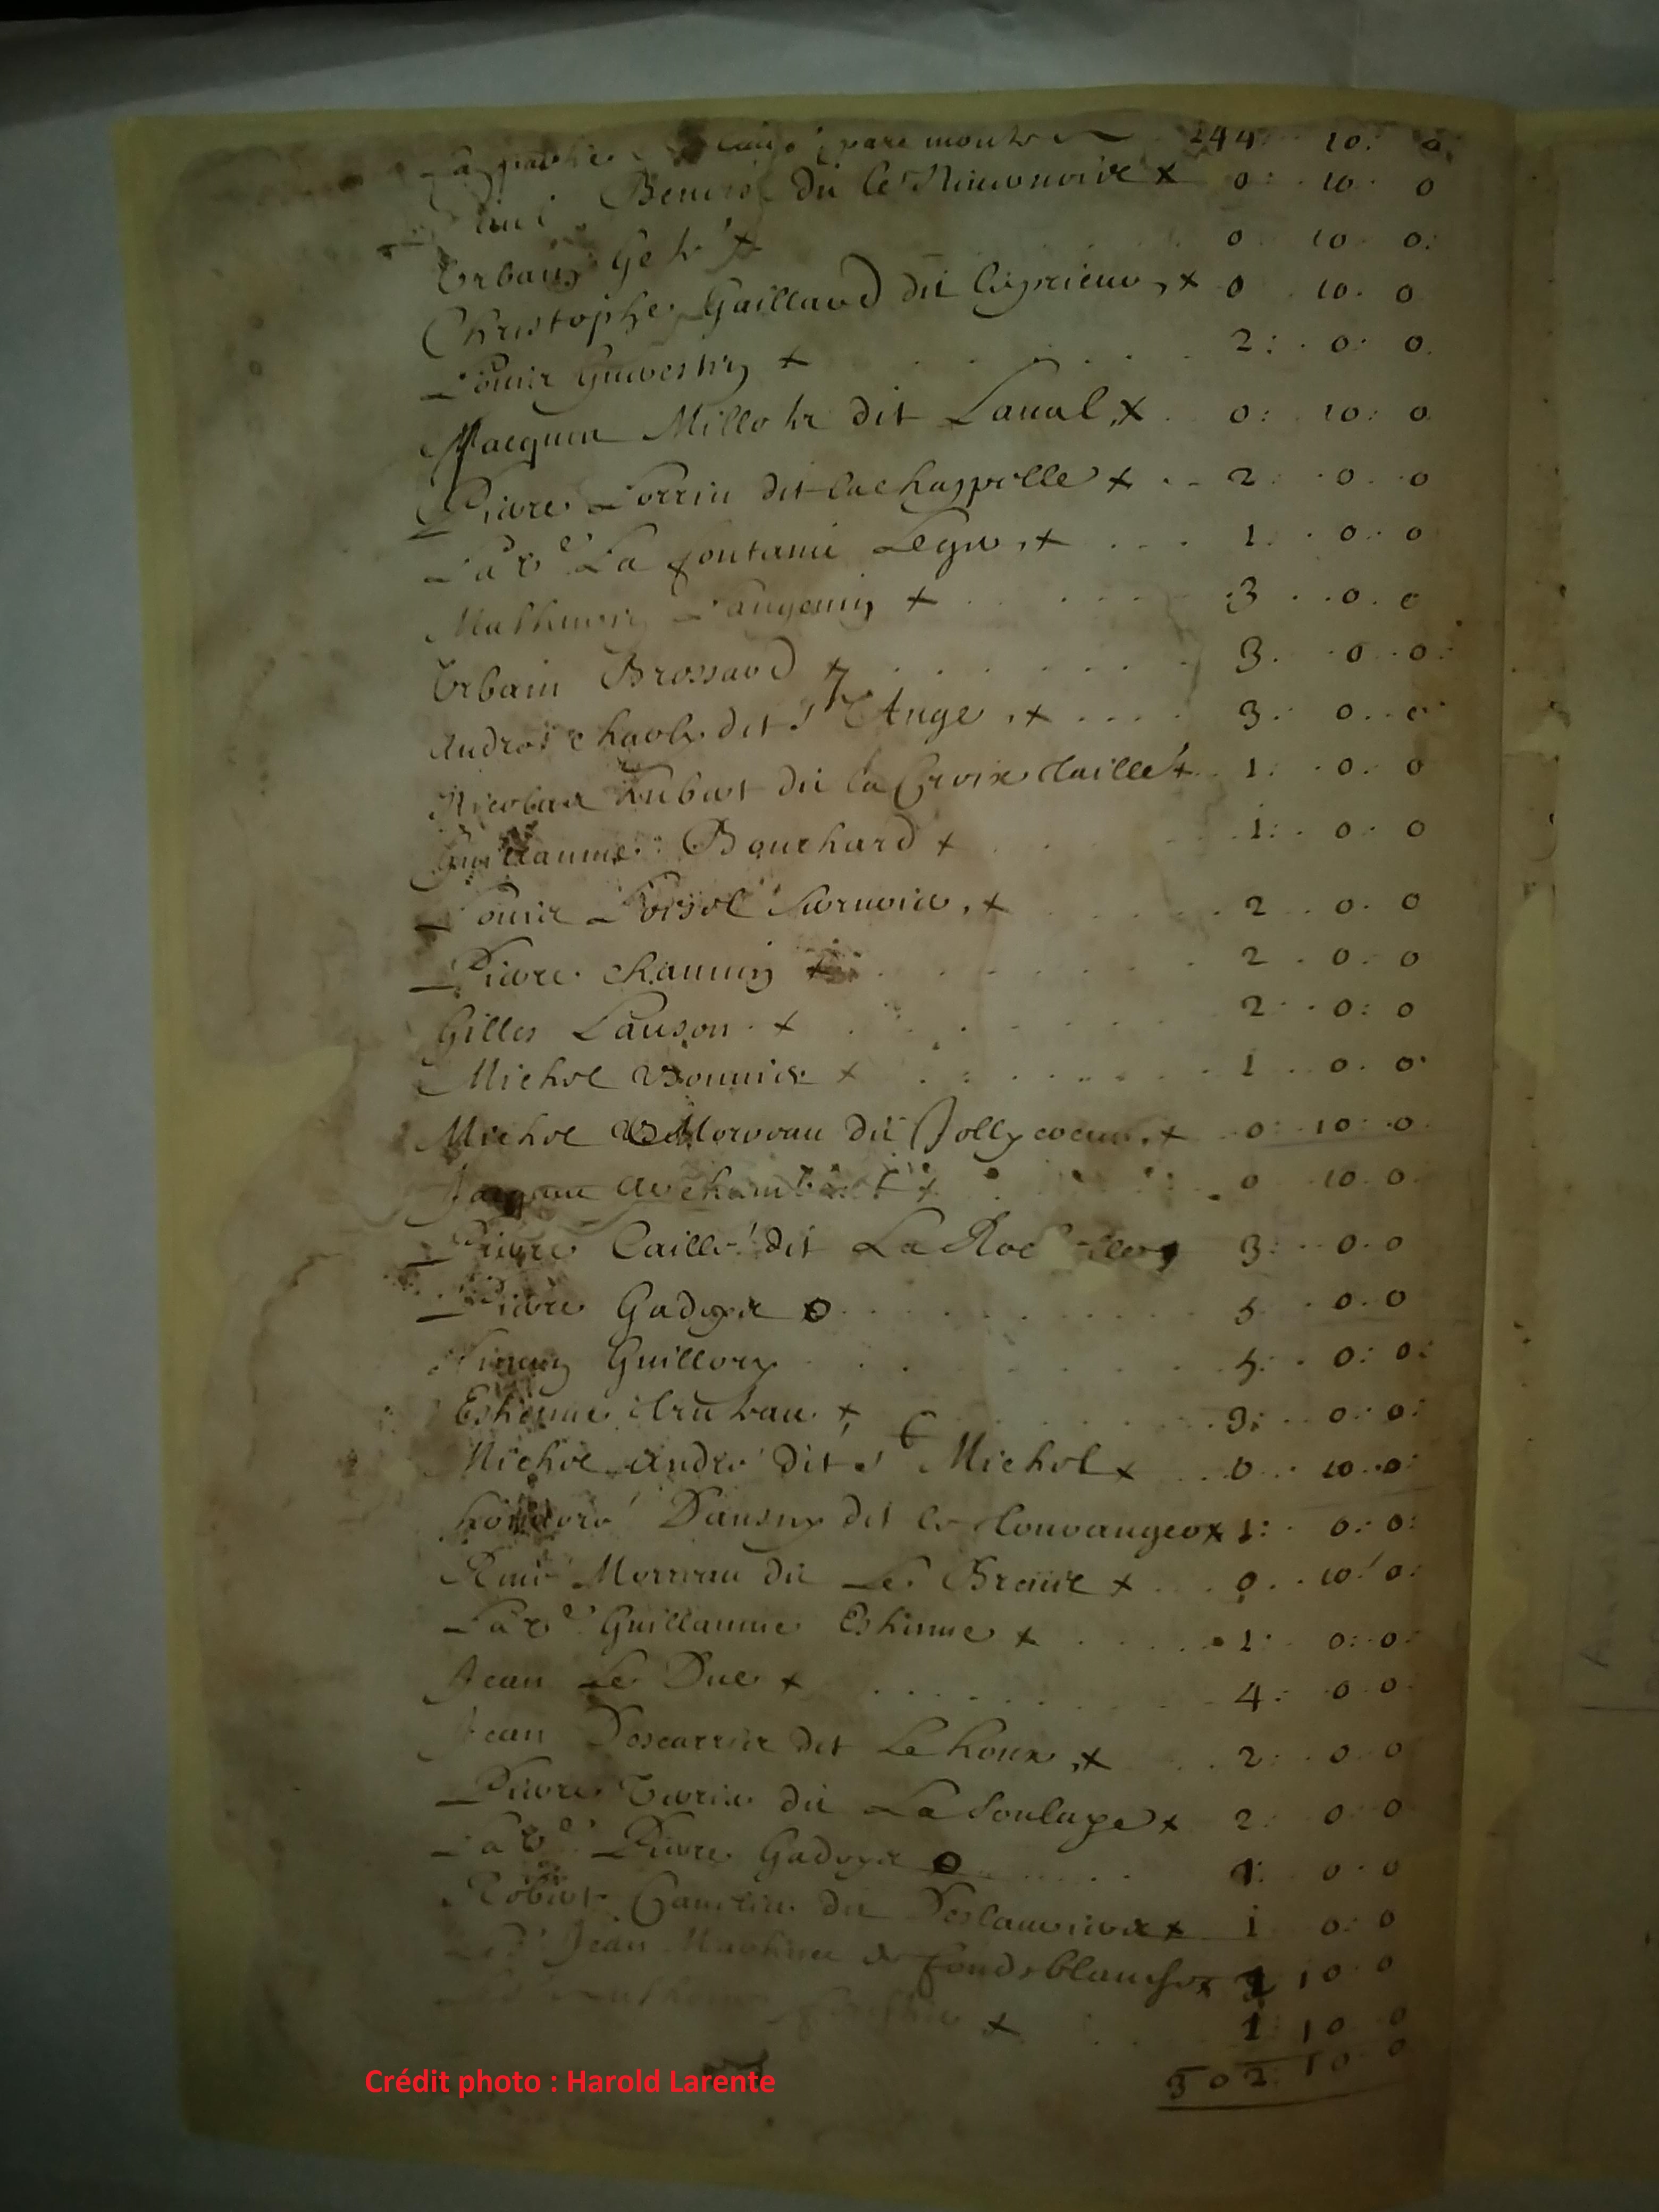 La page cy monte 244: 10: 0:
Paul Benoist dit le Nivernoire x 0: 10 0
Urbain Geté x 0 10 0:
Christophe Gaillard dit le prieur, x 0 10. 0
Louis Guertin x 2: 0: 0.
Jacques Millots dit Laual, x 0: 10: 0
Pierre Lorrin dit lachappelle x 2: 0 0
La Ve La fontaine Leger, x 1. 0 0
Mathurin Langevin x 3 0. 0
Urbain Brossard x 3. 0 0:
André charly dit St Ange, x 3: 0. 0
Nicolas hubert dit la Croix x 1: 0. 0
Guillaume Bouchard x 1: 0 0
Louis Loisel Serurier, x 2 0. 0
Pierre chauuin x 2 0. 0
Gilles Lauson x 2 0: 0
Michel Bouuier x 1 0. 0
Michel Morreau dit Jollycoeur, x 0: 10: 0
Jacques archambault x 0 10 0.
Pierre Caillé dit La Roc 3: 0. 0
Pierre Gadoys o 5 0. 0
Simon Guillory 5: 0: 0:
Estienne truteau x 3: 0: 0:
Michel André dit St Michel x 0 10 0:
honoré Dansny dit le tourangeau x 1: 0: 0:
René Morreau dit Le Breuil x 0. 10 0:
La Ve Guillaume Estienne x 1: 0: 0:
Jean Le Duc x 4: 0 0.
Jean Descarris dit Le houx, x 2: 0 0
Pierre dit La Soulaye x 2: 0 0
La Ve Pierre Gadoys o 1: 0 0
Robert dit Deslauriers x 1 0: 0
Jean de fondblanche x 10 0
x 1: 10 0
302: 10 0
Crédit photo : Harold Larente